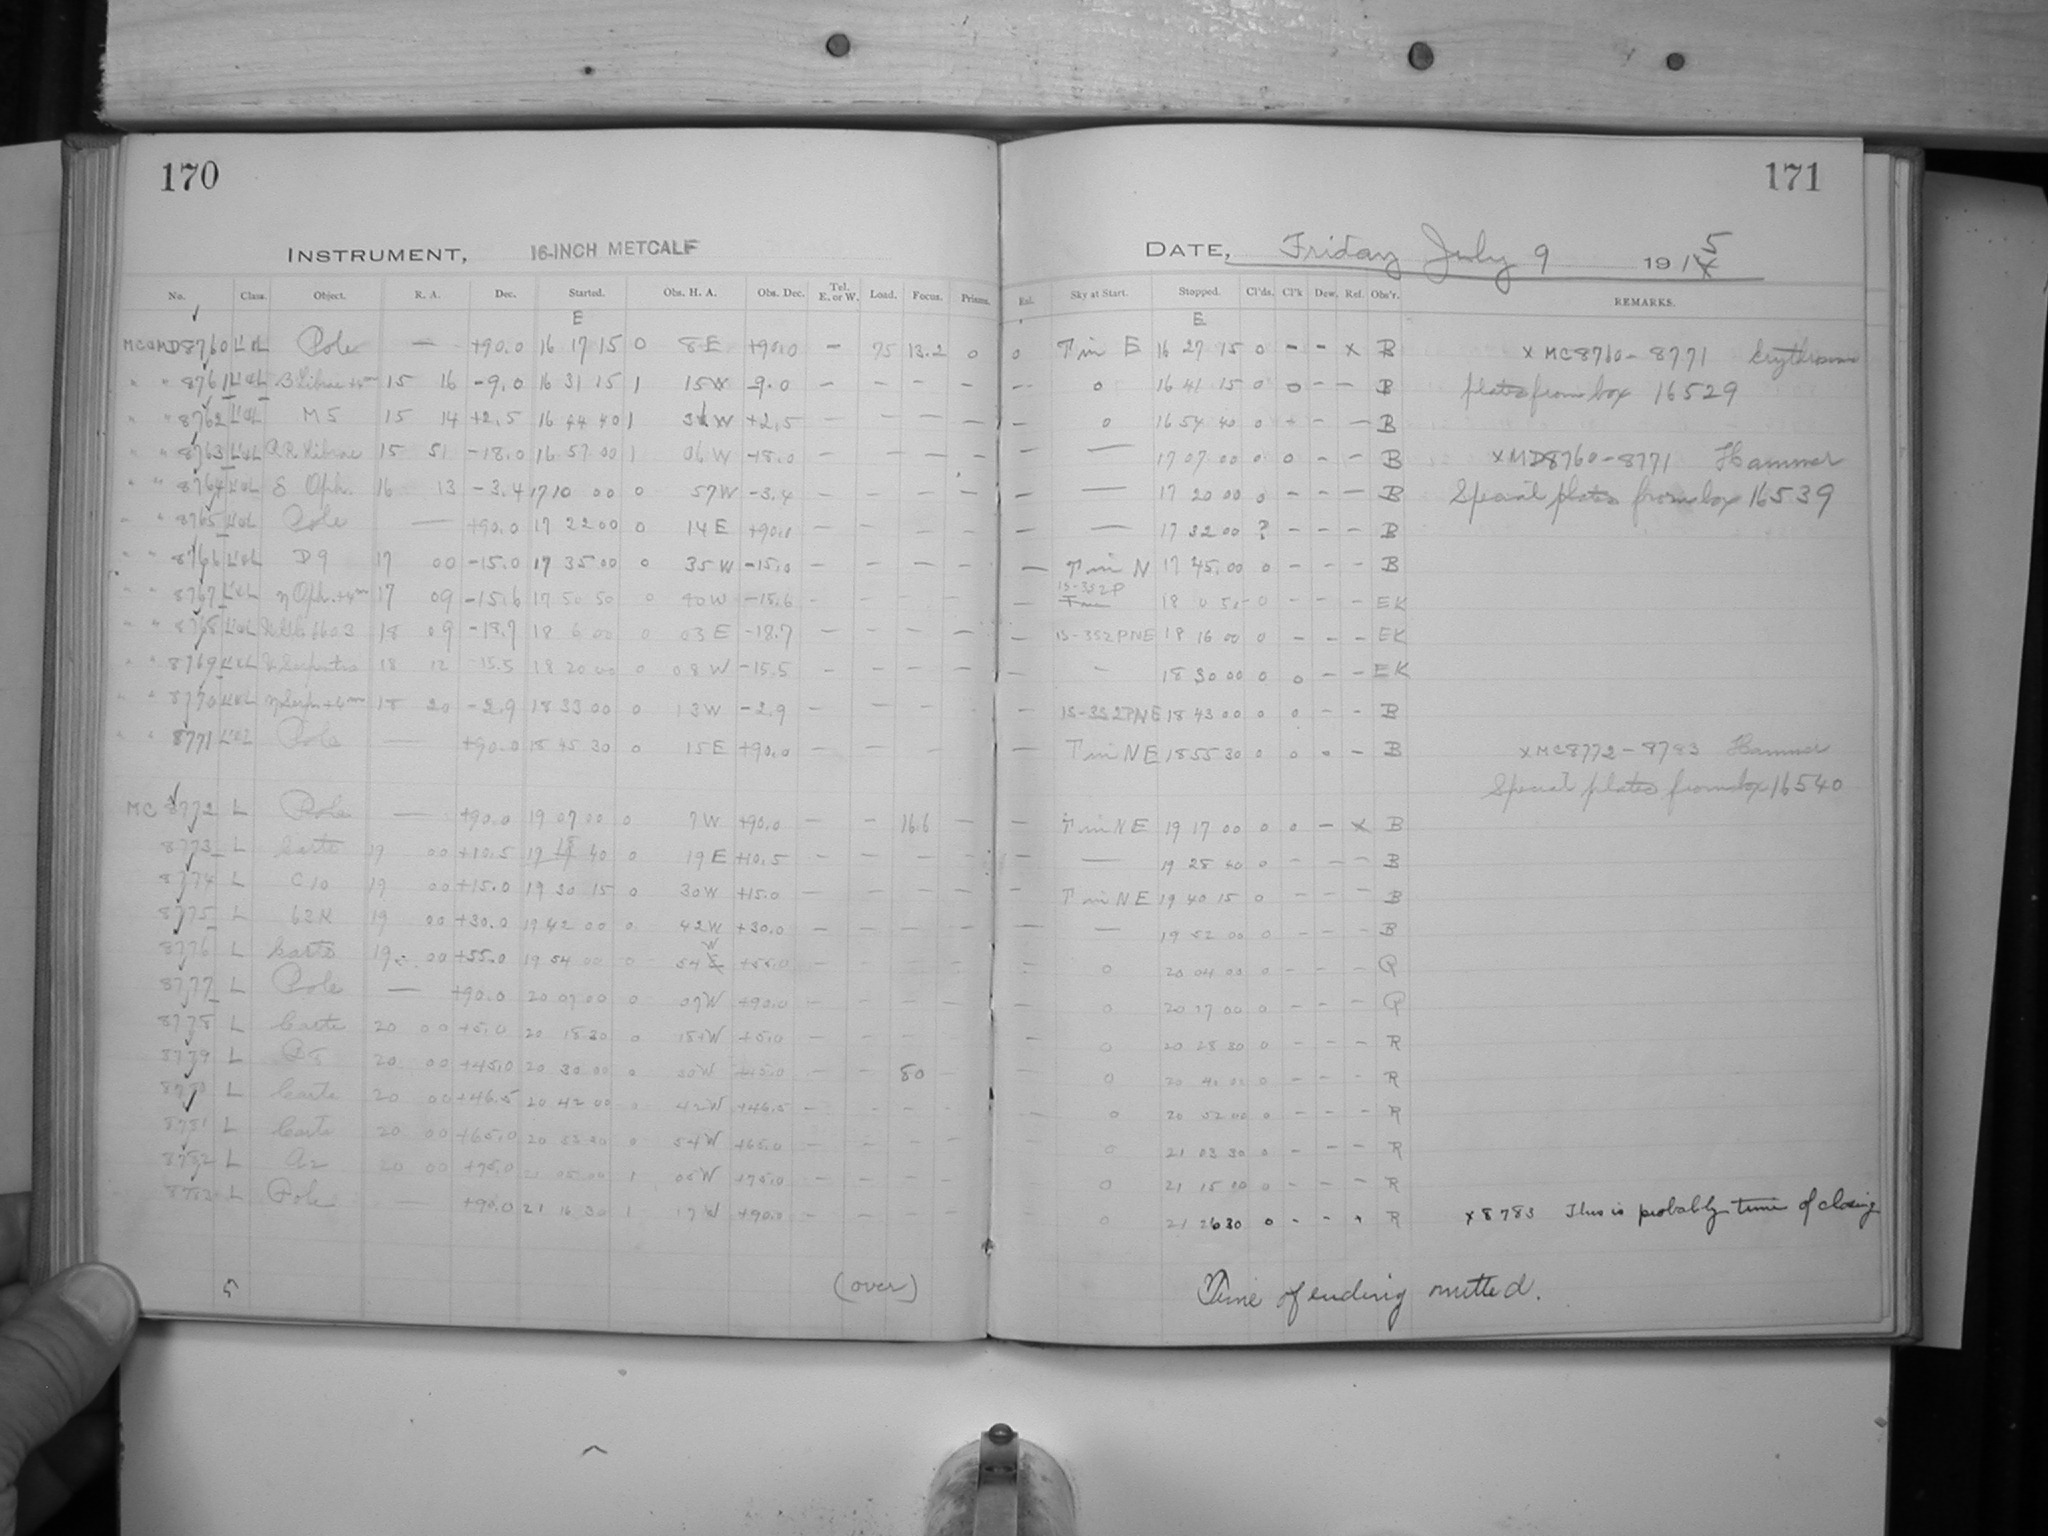 170
171
INSTRUMENT, 16-INCH METCALF
DATE, Friday July 9 1915
No. Class. Object. R. A. Dec. Started. Obs. H. A. Obs. Dec. Tel. E. or W. Load. Focus. Prisms. Sky at Start. Stopped. Cl'ds. Cl'k Dew. Ref. Obs'r. REMARKS.
E E
8760 Pole — +90.0 16 17 15 0 8 E +90.0 – 75 13.2 0 0 16 27 15 0 – – x B x MC 8760 – 8771
8761 15 16 -9.0 16 31 15 1 15 W -9.0 – – – – – 0 16 41 15 0 0 – – B plates from box 16529
8762 M 5 15 14 +2.5 16 44 40 1 W +2.5 – – – – – 0 16 54 40 0 – – B
8763 15 51 -18.0 16 57 00 1 06 W -18.0 – – – – – — 17 07 00 0 0 – – B x MD8760 – 8771 Hammer
8764 S Oph. 16 13 -3.4 17 10 00 0 57 W -3.4 – – – – – — 17 20 00 0 – – – B Special plates from box 16539
8765 Pole — +90.0 17 22 00 0 14 E +90.0 – – – – – — 17 32 00 ? – – – B
8766 D 9 17 00 -15.0 17 35 00 0 35 W -15.0 – – – – – N 17 45 00 0 – – – B
8767 η Oph. 17 09 -15.6 17 50 50 0 40 W -15.6 – – – – – 15-3S2P 18 0 50 0 – – – EK
8768 6603 18 09 -18.7 18 6 00 0 03 E -18.7 – – – – – 15-3S2PNE 18 16 00 0 – – – EK
8769 18 12 -15.5 18 20 00 0 08 W -15.5 – – – – – – 18 30 00 0 0 – – EK
8770 18 20 -2.9 18 33 00 0 13 W -2.9 – – – – – 15-3S2PNE 18 43 00 0 0 – – B
8771 Pole — +90.0 18 45 30 0 15 E +90.0 – – – – – NE 18 55 30 0 0 0 – B x MC8772 – 8783 Hammer
Special plates from box 16540
MC 8772 L Pole — +90.0 19 07 00 0 7 W +90.0 – – 16.6 – – NE 19 17 00 0 0 – x B
8773 L Carte 19 00 +10.5 19 18 40 0 19 E +10.5 – – – – – — 19 28 40 0 – – – B
8774 L C 10 19 00 +15.0 19 30 15 0 30 W +15.0 – – – – – NE 19 40 15 0 – – – B
8775 L 19 00 +30.0 19 42 00 0 42 W +30.0 – – – – – — 19 52 00 0 – – – B
8776 L Carte 19 00 +55.0 19 54 00 0 54 W +55.0 – – – – – 0 20 04 00 0 – – –
8777 L Pole — +90.0 20 07 00 0 07 W +90.0 – – – – – 0 20 17 00 0 – – –
8778 L Carte 20 00 +5.0 20 18 30 0 18 W +5.0 – – – – – 0 20 28 30 0 – – – R
8779 L 20 00 +45.0 20 30 00 0 30 W +45.0 – – 80 – 0 20 40 00 0 – – – R
8780 L Carte 20 00 +46.5 20 42 00 0 42 W +46.5 – – – – – 0 20 52 00 0 – – – R
8781 L Carte 20 00 +65.0 20 53 30 0 54 W +65.0 – – – – – 0 21 03 30 0 – – – R
8782 L A2 20 00 +75.0 21 05 00 1 05 W +75.0 – – – – 0 21 15 00 0 – – – R
8783 L Pole — +90.0 21 16 30 1 17 W +90.0 – – – – 0 21 26 30 0 – – x R x 8783 This is probably time of closing
(over) Time of ending omitted.